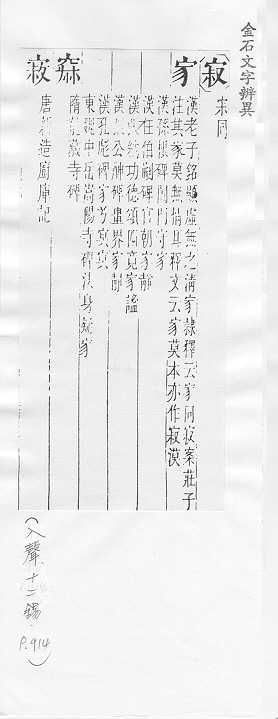 金石文字辨異
寂
宋同
家
漢老子銘顯虛無之清家隸釋云家同寂案莊子
注其家莫無情耳釋文云家莫本亦作寂漠
漢孫根碑闔門守家
漢任伯嗣碑官朝家靜
功德頌 家謐
公神碑畺界家靜
漢孔彪碑家兮冥冥
東魏中岳嵩陽寺碑法身疑家
隋龍藏寺碑
寂
唐新造廚庫記
(入聲.十二錫.
P.914)